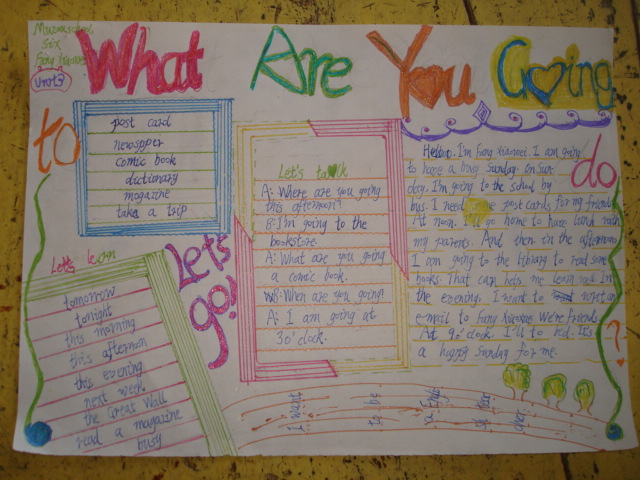 What Are You Going
to
do
?
Six
Unit3
post card
newspper
comic book
dictionary
magazine
take a trip
Let's learn
tomorrow
tonight
this morning
this afternoon
this evening
next week
the Great Wall
read a magazine
busy
Let's
go!
Let's talk
A: Where are you going
this afternoon?
B: I'm going to the
bookstore.
A: What are you going
a comic book.
When are you going?
A: I am going at
3 o'clock.
I'm Fang Xiaomei. I am going
to have a busy Sunday. On Sun
day. I'm going to the school by
bus. I need post cards for my friends
At noon. I'll go home to have lunch with
my parents. And then in the afternoon
I am going to the library to read some
books. That can help me learn In
the evening. I want to an
e-mail to Fang We're friends.
At 9o'clock. I'll to bed. It's
a happy Sunday for me.
I want to be